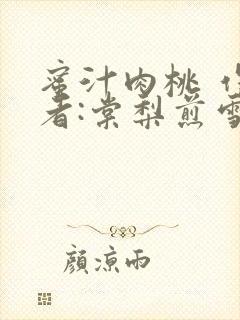 蜜汁肉桃 作
者:棠梨煎雪
顏涼雨